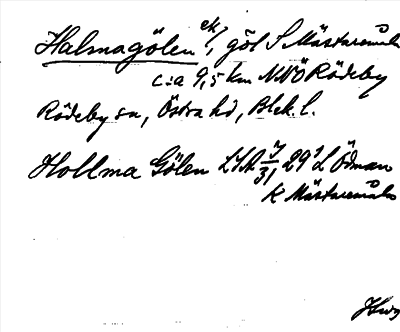 Halmagölen ek/, göl S Mästaremåla
c:a 9,5 km NNÖ Rödeby
Rödeby sn, Östra hd, Blek. l.
Hollma Gölen LMA 7/31 29 L Ödman
K Mästaremåla